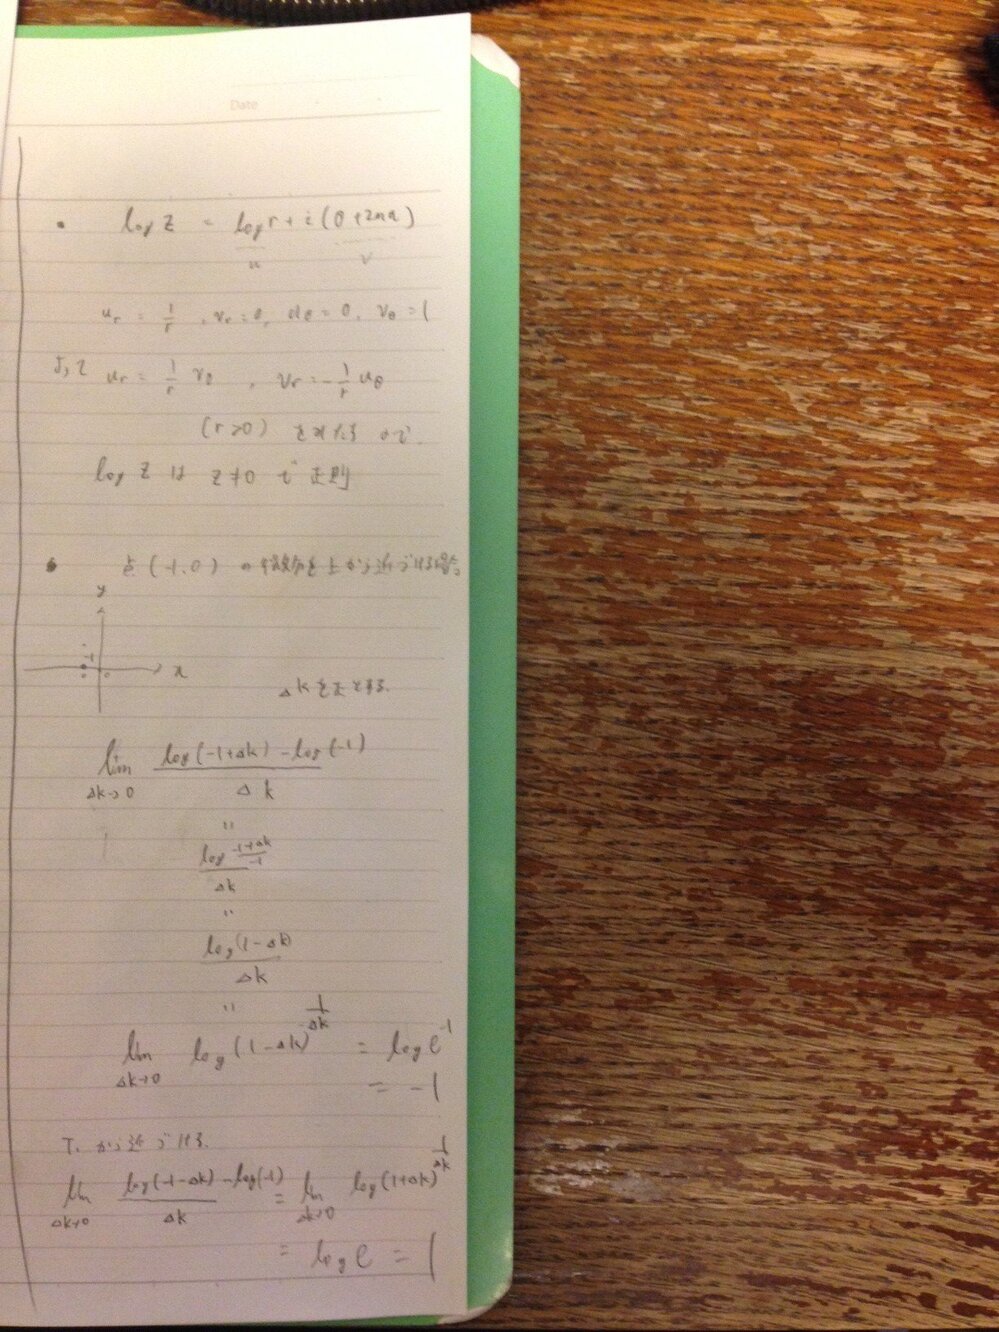 Date
log z = log r + i (θ+2nπ)
u v
u_r = 1/r , v_r = 0, u_θ = 0, v_θ = 1
よって u_r = 1/r v_θ , v_r = -1/r u_θ
(r>0) をみたすので
log z は z≠0 で 正則
点 (-1,0) の 微分を上から近づける場合
y
-1
0 x
Δk を正とする.
lim Δk→0 (log(-1+Δk) - log(-1)) / Δk
=
log((-1+Δk)/-1) / Δk
=
log(1-Δk) / Δk
=
lim Δk→0 log(1-Δk)^(1/Δk) = log e^-1
= -1
下から近づける.
lim Δk→0 (log(-1-Δk) - log(-1)) / Δk = lim Δk→0 log(1+Δk)^(1/Δk)
= log e = 1